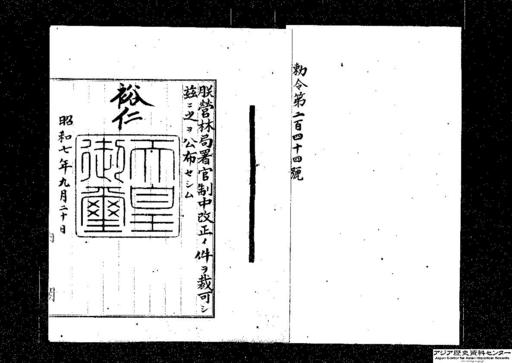 勅令第二百四十四號
朕營林局署官制中改正ノ件ヲ裁可シ
茲ニ之ヲ公布セシム
裕仁
天皇
御璽
昭和七年九月二十日
アジア歴史資料センター
Japan Center for Asian Historical Records